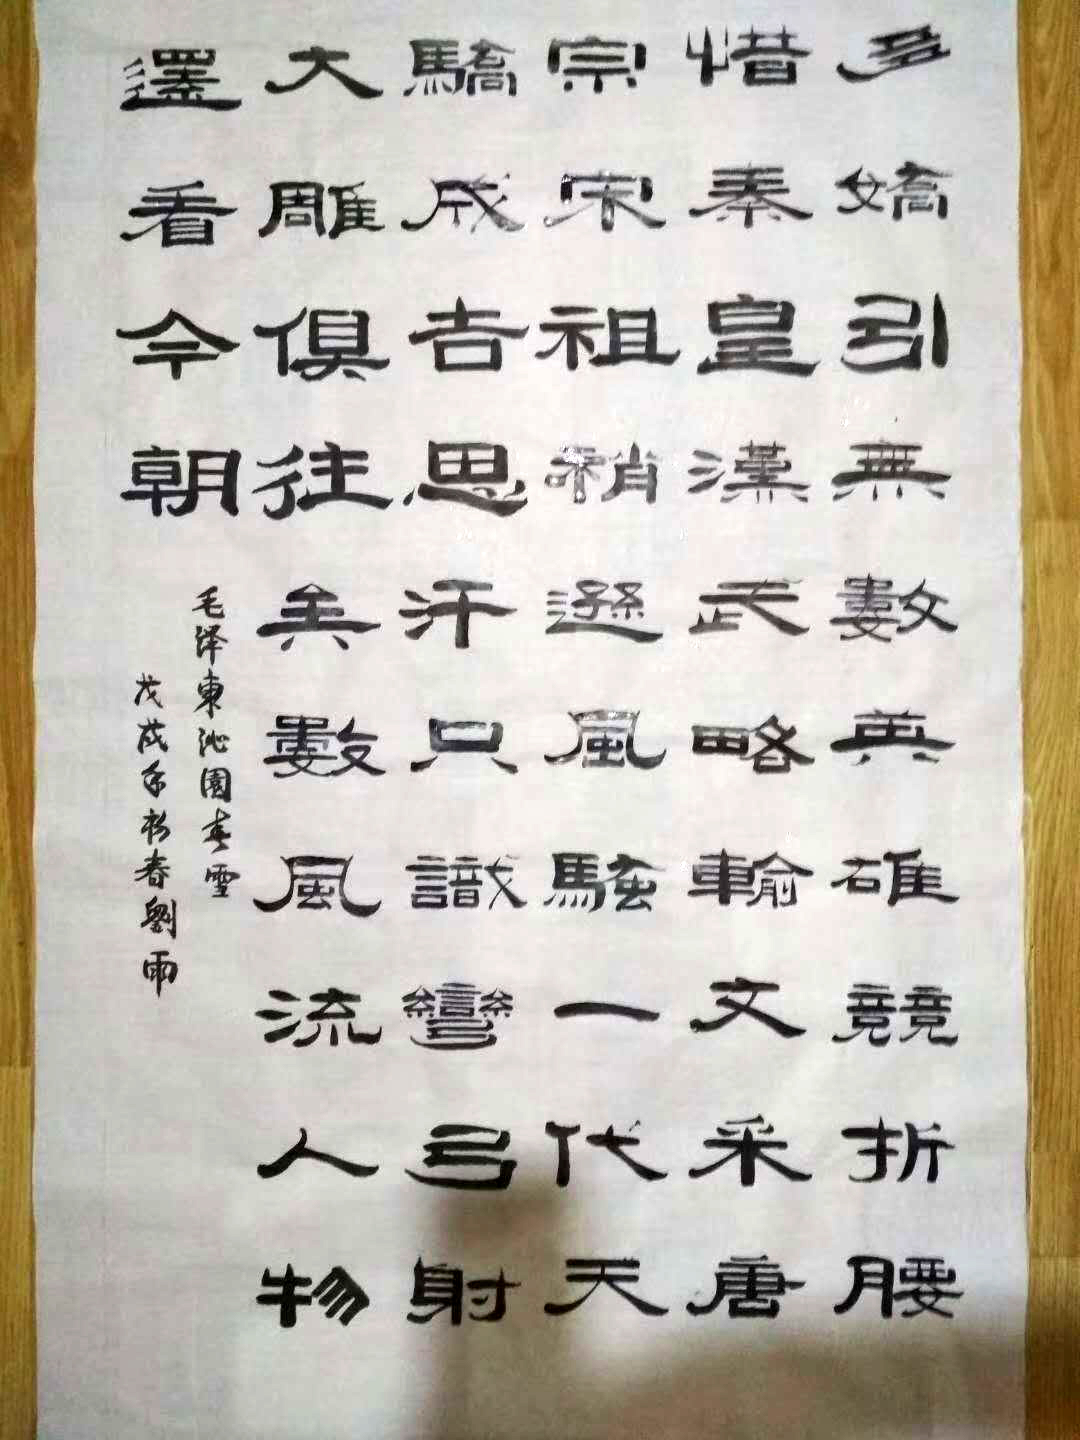 多嬌引無數英雄競折腰
惜秦皇漢武略輸文采唐
宗宋祖稍遜風騷一代天
驕成吉思汗只識彎弓射
大雕俱往矣數風流人物
還看今朝
毛泽東沁園春雪
戊戌年初春劉雨